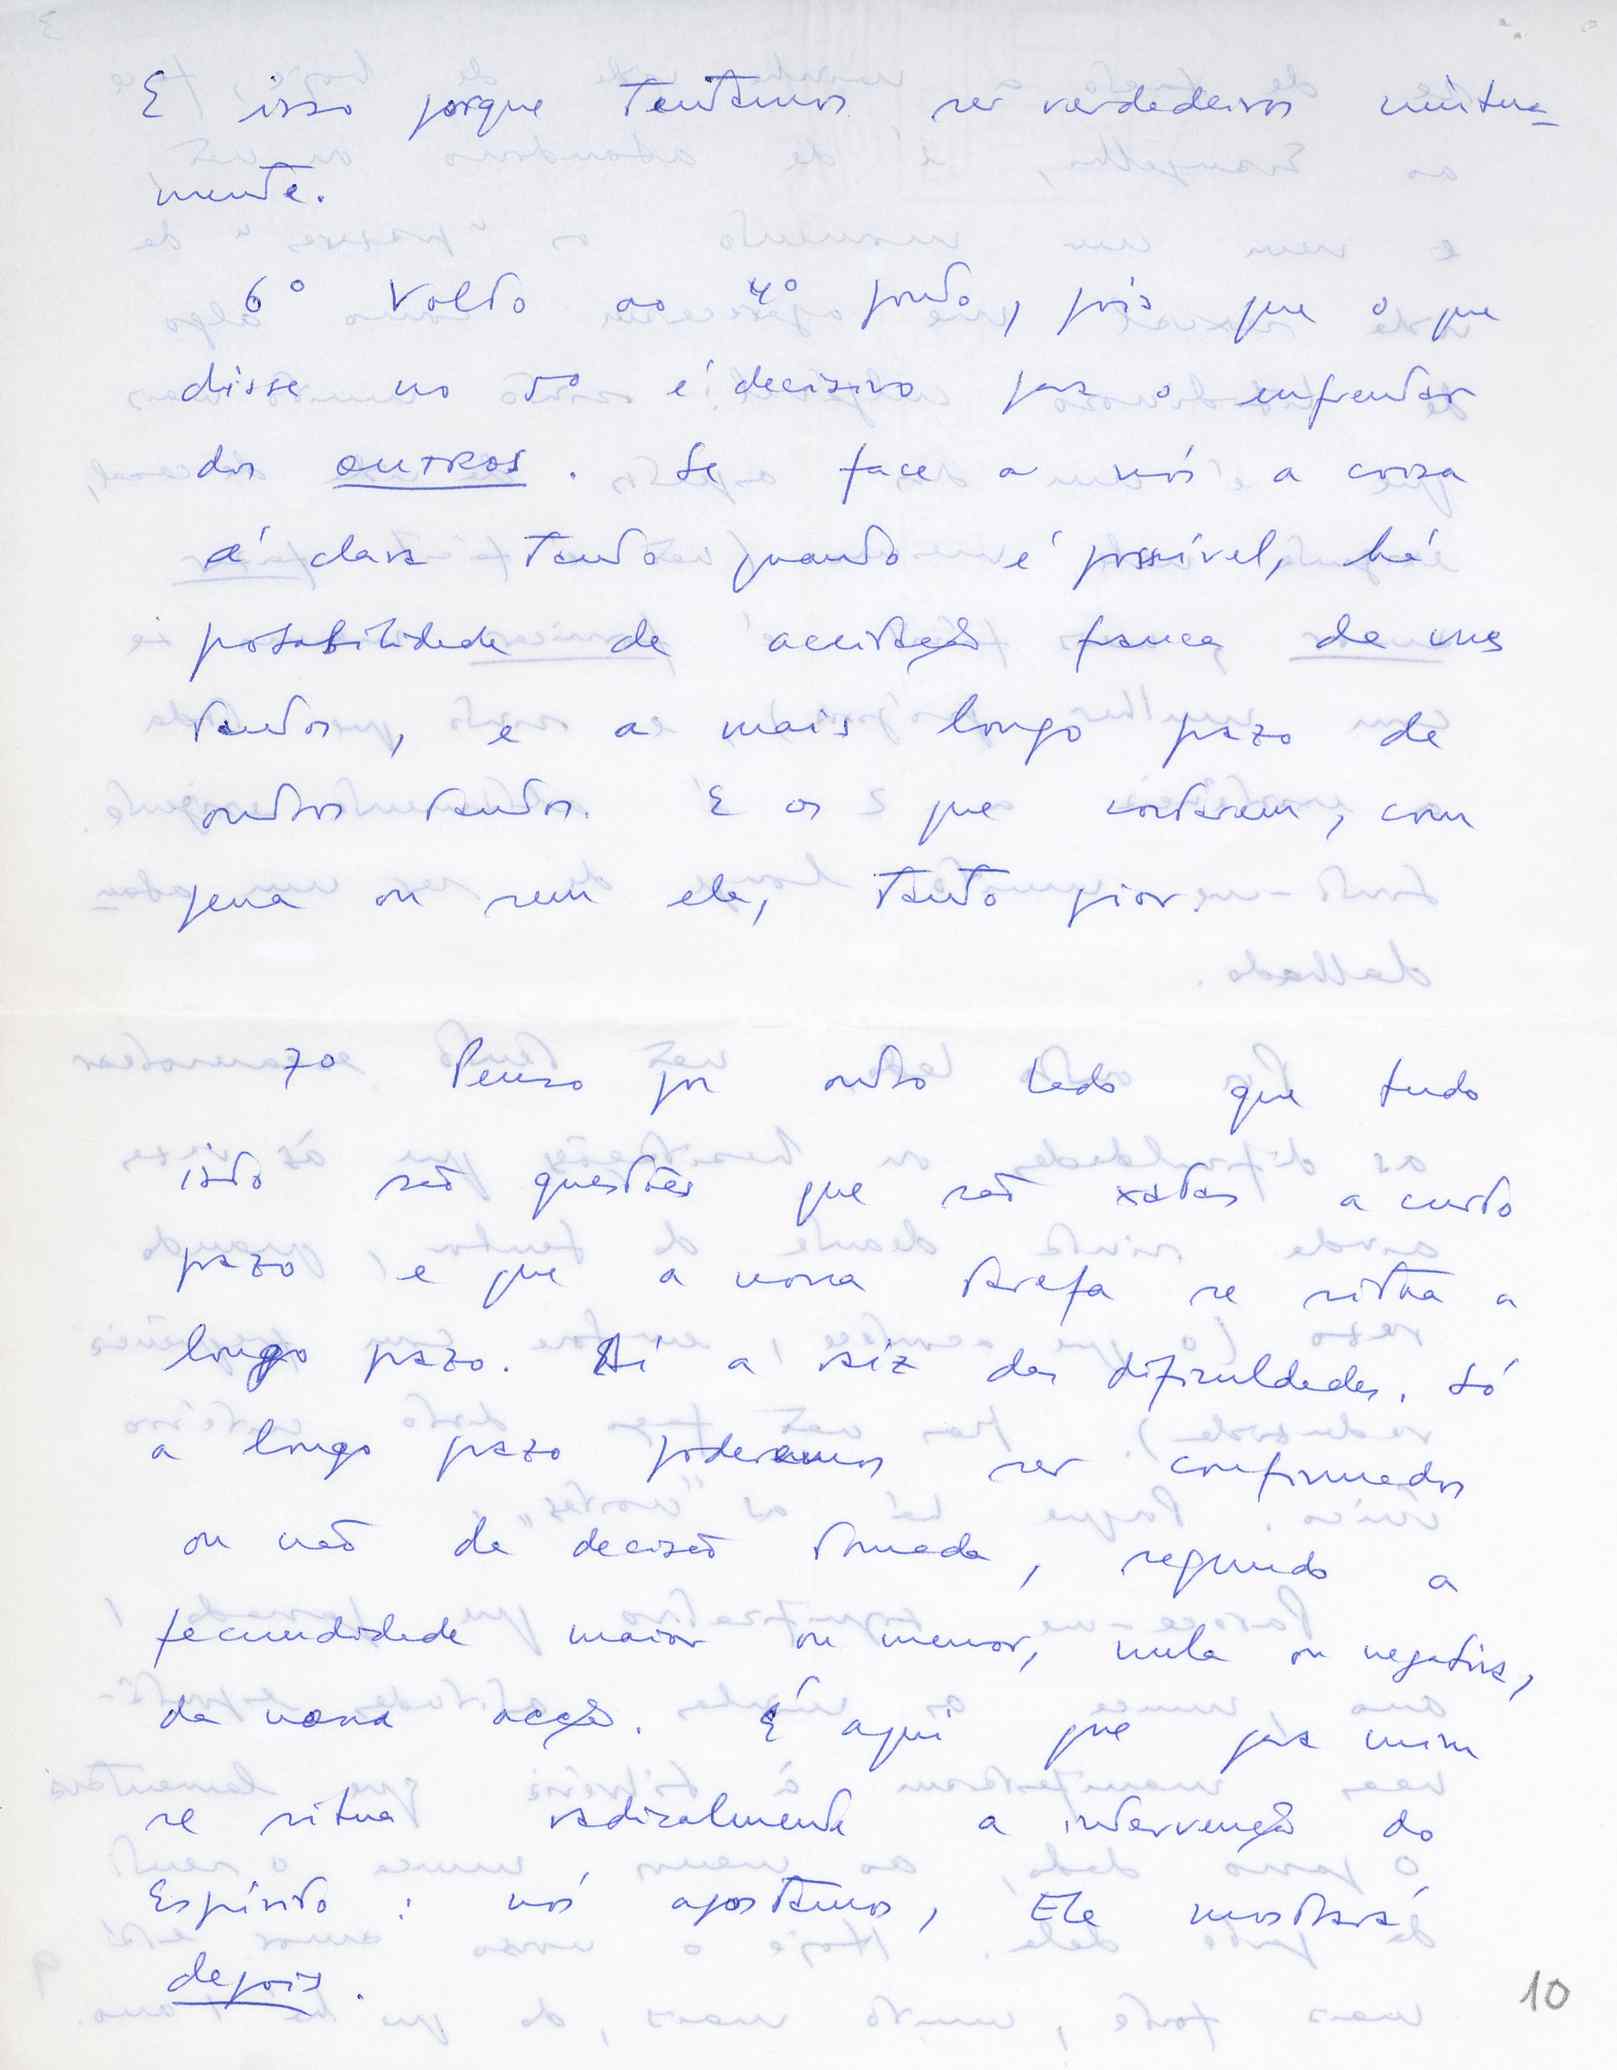 E isso porque tentamos ser verdadeiros mútua-
mente.
6º Volto ao 4º ponto, pois que o que
disse no 5º é decisivo para o enfrentar
dos OUTROS. Se face a nós a coisa
é clara tanto quanto é possível, há
probabilidade de aceitação franca de uns
tantos, e a mais longo prazo de
outros tantos. E os 2 que cortarem, com
pena ou sem ela, tanto pior.
7º Penso por outro lado que tudo
isto são questões que são postas a curto
prazo e que a nossa tarefa se situa a
longo prazo. Aí a raiz das dificuldades. Só
a longo prazo poderemos ser confirmados
ou não da decisão tomada, segundo a
fecundidade maior ou menor, nula ou negativa,
da nossa acção. É aqui que para mim
se situa radicalmente a intervenção do
Espírito: nós apostamos, Ele mostrará
depois.
10